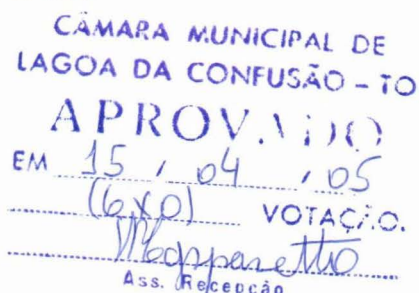 CÂMARA MUNICIPAL DE
LAGOA DA CONFUSÃO - TO
APROVADO
EM 15 / 04 / 05
(6x0) VOTAÇÃO.
Ass. Recepção